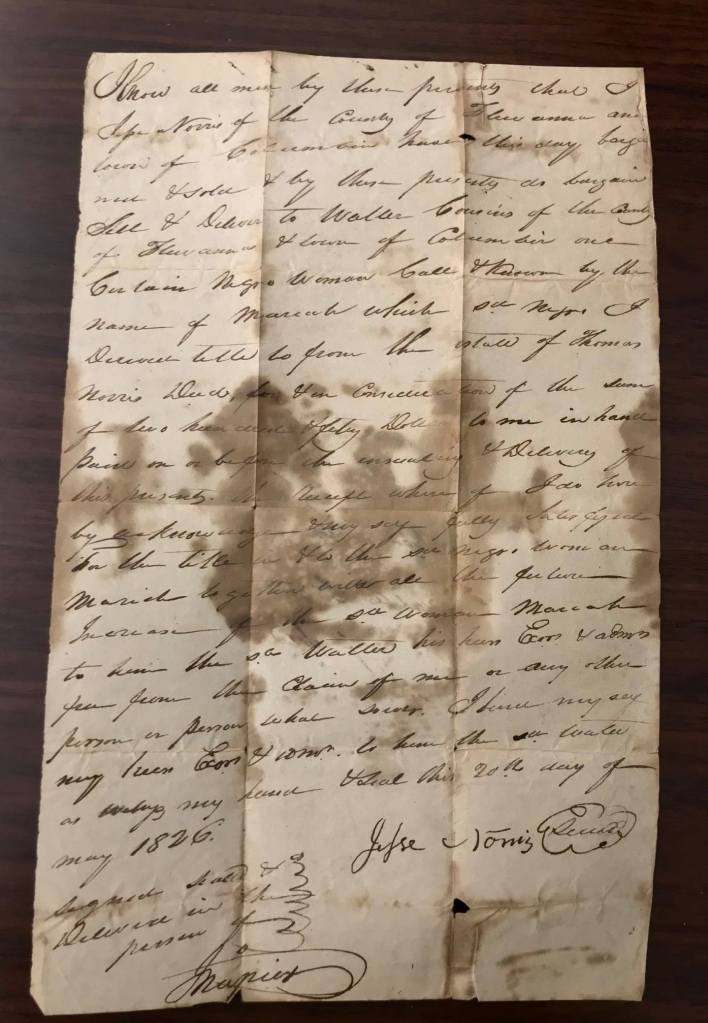 Know all men by these presents that I
Jesse Norris of the County of Fluvanna and
town of Columbia have this day bargai
ned & sold & by these presents do bargain
Sell & Deliver to Walter Cousins of the County
of Fluvanna & town of Columbia one
Certain Negro Woman Call & Known by the
name of Mariah which sd Negro I
Derived title to from the estate of Thomas
Norris Decd, for & in Consideration of the sum
of two hundred & fifty Dollars to me in hand
paid on or before the &  Delivery of
this presents. the Receipt where of I do here
by acknowledge & my self fully Satisfyed
For the title in & to the sd Negro woman
Mariah together with all the future
Increase of the sd Woman Mariah
to him the sd Walter his heirs Exors & admrs
free from the Claim of me or any other
person or persons what soever. I bind my self
my heirs Exors & admrs. to him the sd Walter
as my hand & seal this 20th day of
may 1826.
Jesse Norris
signed seald &
Delivered in the
of